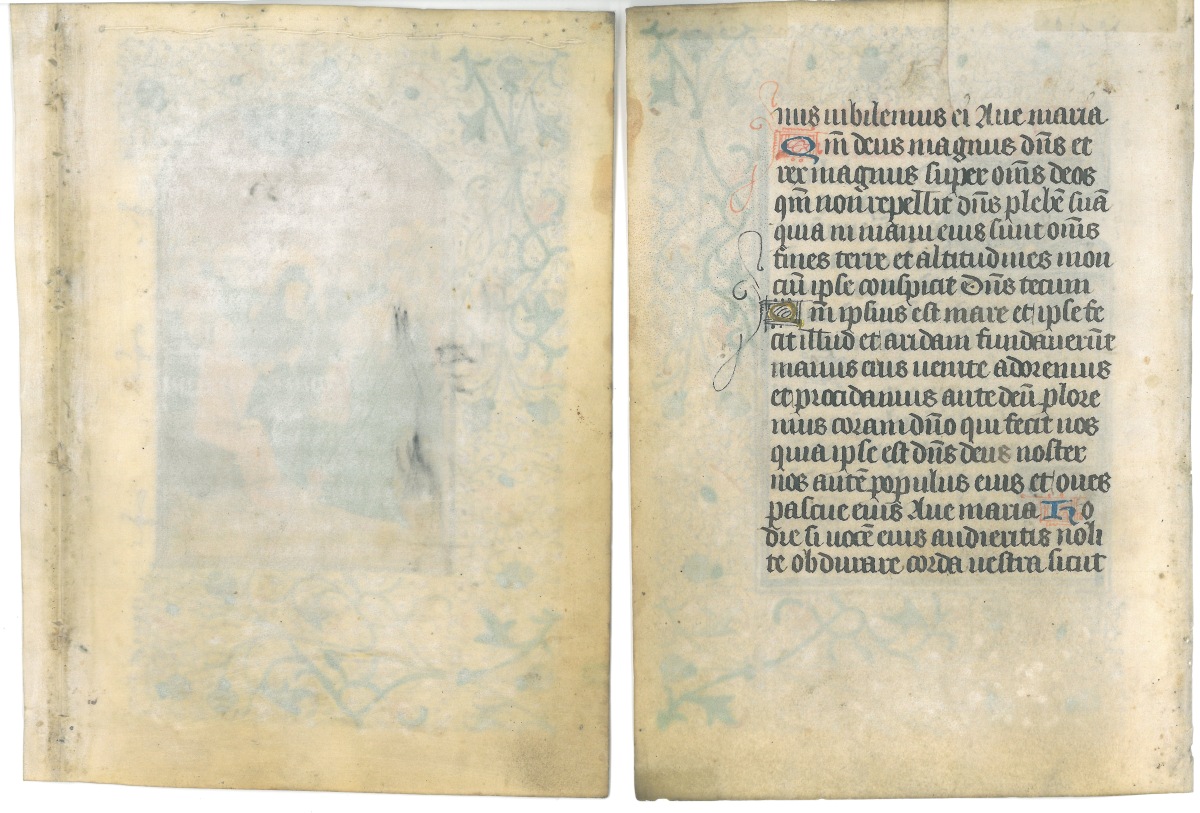 mus iubilemus ei Aue maria
Qm̄ deus magnus dn̄s et
rex magnus super om̄s deos
qm̄ non repellit dn̄s plebē suā
quia in manu eius sunt om̄s
fines terre et altitudines mon
ciū ipse conspicit Dn̄s tecum
Qm̄ ipsius est mare et ipse fe
cit illud et aridam fundauerūt
manus eius uenite adoremus
et procidamus ante deū plore
mus coram dn̄o qui fecit nos
quia ipse est dn̄s deus noster
nos autē populus eius et oues
pascue eius Aue maria Ho
die si uocē eius audieritis noli
te obdurare corda uestra sicut